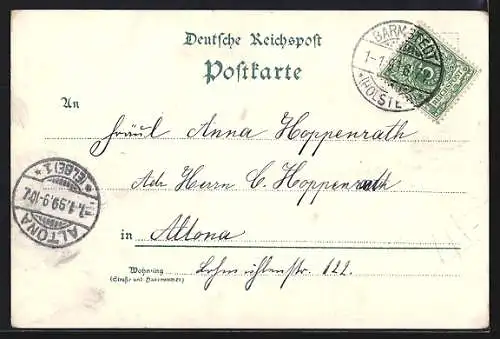 Deutsche Reichspost
Postkarte
BARMSTEDT
1-1
(HOLSTEIN)
REICHSPOST
5
An
Fräul Anna Hoppenrath
Adr Herrn C. Hoppenrath
in Altona
Wohnung
(Straße und Hausnummer)
Lohmühlenstr. 122.
ALTONA
1.1.99.9-10V.
*(ELBE)1*